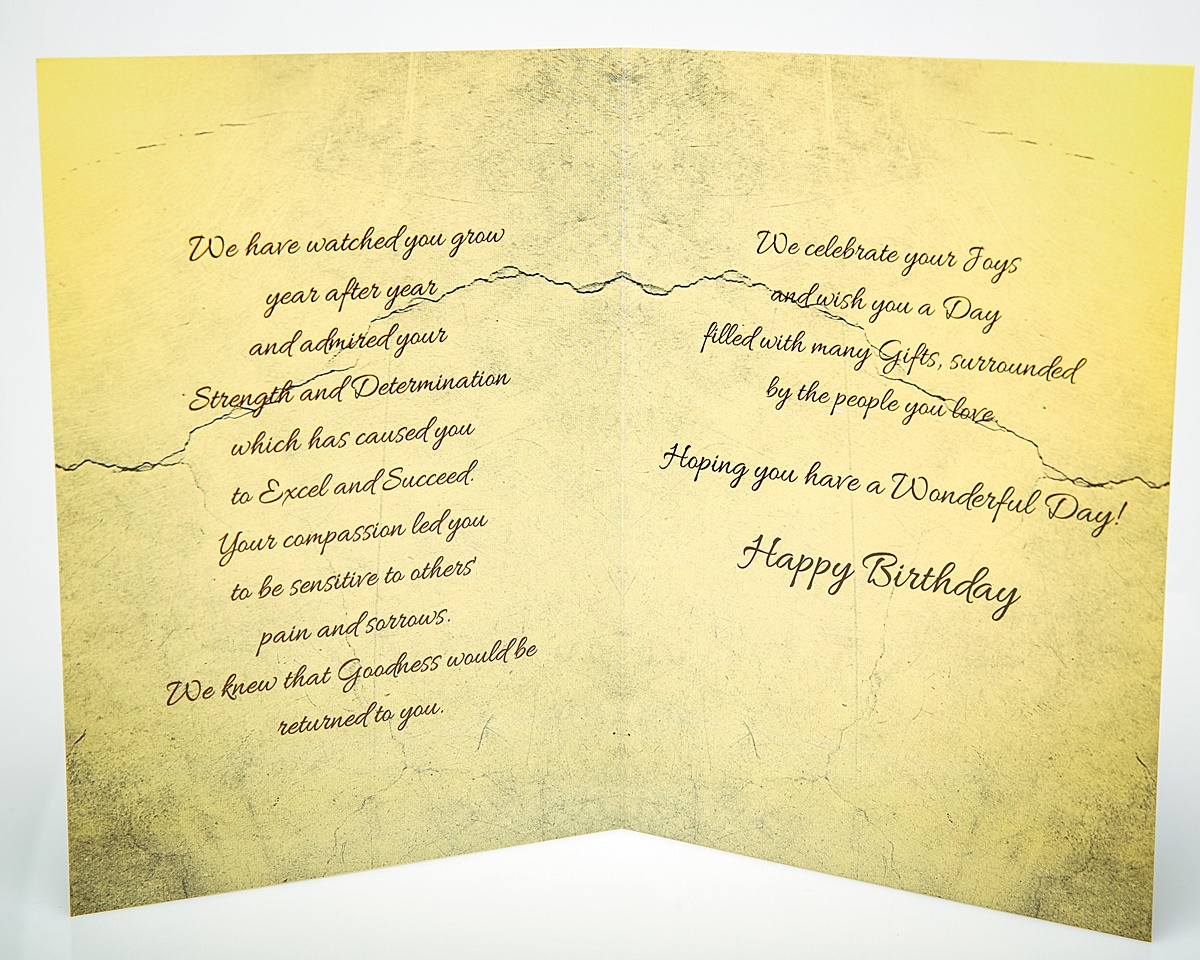 We have watched you grow
year after year
and admired your
Strength and Determination
which has caused you
to Excel and Succeed.
Your compassion led you
to be sensitive to others'
pain and sorrows.
We knew that Goodness would be
returned to you.
We celebrate your Joys
and wish you a Day
filled with many Gifts, surrounded
by the people you love.
Hoping you have a Wonderful Day!
Happy Birthday